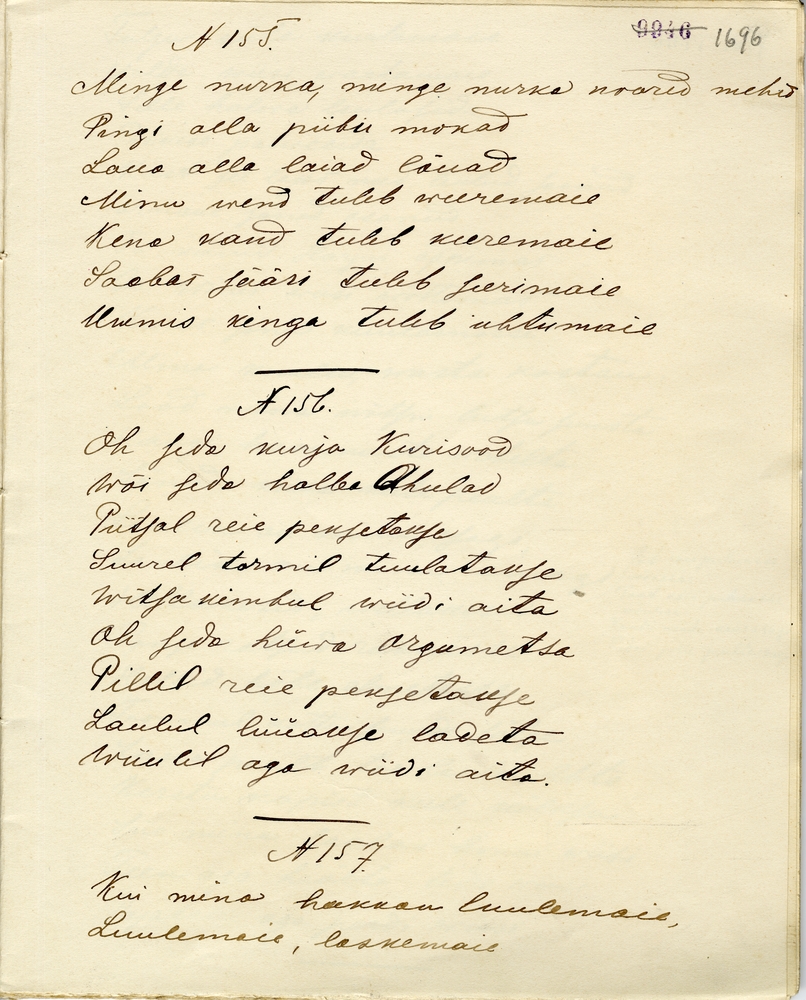 N 155.
9946 1696
Minge nurka, minge nurka noored mehed
Pingi alla piibu mokad
Laua alla laiad lõuad
Minu wend tuleb weeremaie
Kena kand tuleb keeremaie
Saabas sääri tuleb seerimaie
Uuemis kinga tuleb uhtumaie
N 156.
Oh seda kurja Kurisood
Wõi seda halba Ahulad
Piitsal reie peksetakse
Suurel tormil tuulatakse
Witsa kimbul wiidi aita
Oh seda hüwa Orgumetsa
Pillil reie peksetakse
Laulul lüüakse ladeta
Wiiulil aga wiidi aita.
N 157.
Kui mina hakkan luulemaie,
Luulemaie, laskemaie